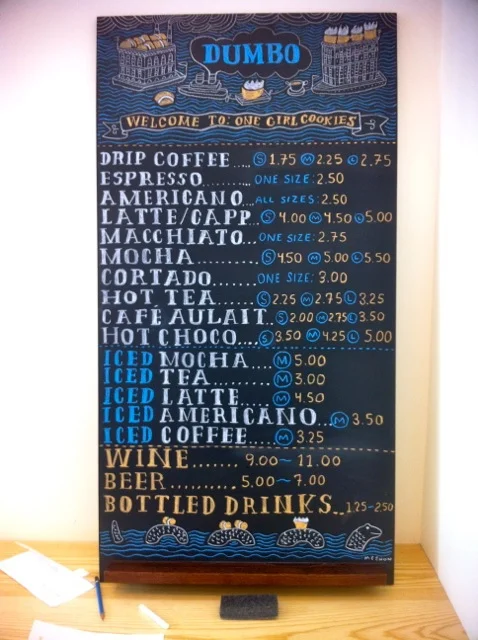 DUMBO
WELCOME TO: ONE GIRL COOKIES
DRIP COFFEE .... S 1.75 M 2.25 L 2.75
ESPRESSO......... ONE SIZE: 2.50
AMERICANO... ALL SIZES: 2.50
LATTE/CAPP... S 4.00 M 4.50 L 5.00
MACCHIATO... ONE SIZE: 2.75
MOCHA .......... S 4.50 M 5.00 L 5.50
CORTADO....... ONE SIZE: 3.00
HOT TEA....... S 2.25 M 2.75 L 3.25
CAFÉ AULAIT.. S 2.00 M 2.75 L 3.50
HOT CHOCO.... S 3.50 M 4.25 L 5.00
ICED MOCHA .... M 5.00
ICED TEA......... M 3.00
ICED LATTE..... M 4.50
ICED AMERICANO... M 3.50
ICED COFFEE.... M 3.25
WINE....... 9.00~ 11.00
BEER.......... 5.00~ 7.00
BOTTLED DRINKS.. 1.25-2.50